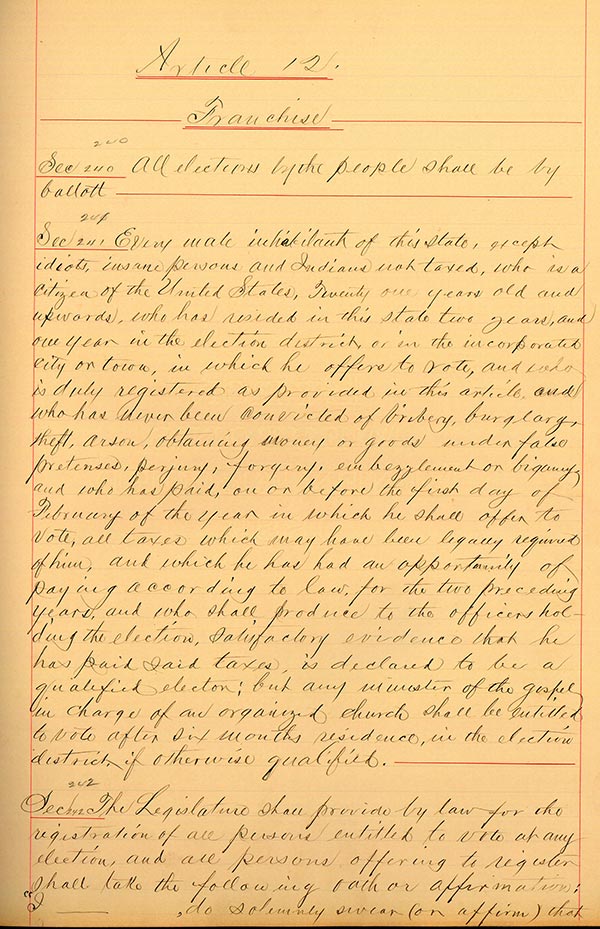 Article 12.
Franchise
240
Sec 240 All elections by the people shall be by
ballott
241
Sec 241 Every male inhabitant of this state, except
idiots, insane persons and Indians not taxed, who is a
citizen of the United States, Twenty one years old and
upwards, who has resided in this state two years, and
one year in the election district, or in the incorporated
city or town, in which he offers to vote, and who
is duly registered as provided in this article, and
who has never been convicted of bribery, burglary,
theft, arson, obtaining money or goods under false
pretenses, perjury, forgery, embezzlement or bigamy,
and who has paid, on or before the first day of
February of the year in which he shall offer to
vote, all taxes which may have been legally required
of him, and which he has had an opportunity of
paying according to law, for the two preceding
years, and who shall produce to the officers hol-
ding the election, satisfactory evidence that he
has paid said taxes, is declared to be a
qualified elector; but any minister of the gospel
in charge of an organized church shall be entitled
to vote after six months residence, in the election
district, if otherwise qualified.
242
Sec 242 The Legislature shall provide by law for the
registration of all persons entitled to vote at any
election, and all persons offering to register
shall take the following oath or affirmation;
"I ——— , do solemnly swear (or affirm) that